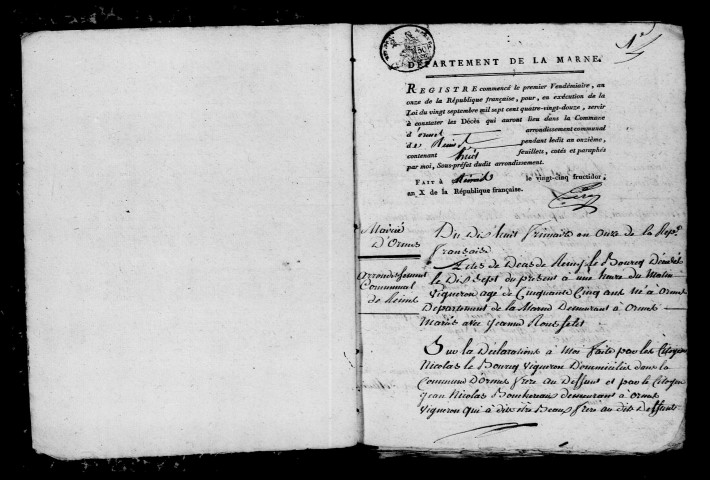 DÉPARTEMENT DE LA MARNE.
REGISTRE commencé le premier Vendémiaire, an
onze de la République française, pour, en exécution de la
Loi du vingt septembre mil sept cent quatre-vingt-douze, servir
à constater les Décès qui auront lieu dans la Commune
d'ormes arrondissement communal
de Reims pendant ledit an onzième,
contenant huit feuillets, cotés et paraphés
par moi, Sous-préfet dudit arrondissement.
FAIT à Reims le vingt-cinq fructidor,
an X de la République française.
Mairie
D'Ormes
Arrondissement
Communal
de Reims
Du Dix huit frimaire an Onze de la Rep.
française
Actes de Deces de Remy le Bourcq Decede
le Dix Sept du present à une heure du Matin
Vigneron agé de Cinquante Cinq ans né à Ormes
Departement de la Marne Demeurant à Ormes
Mariés avec Jeanne Rousselet
Sur la Declarations à Moi faite par les Citoyen
Nicolas le Bourcq Vigneron Dommicilié dans la
Commune D'Ormes frere au Deffunt et par le Citoyen
Jean Nicolas demeurant à Ormes
Vigneron qui à dit être Beaux frere au dit Deffunt